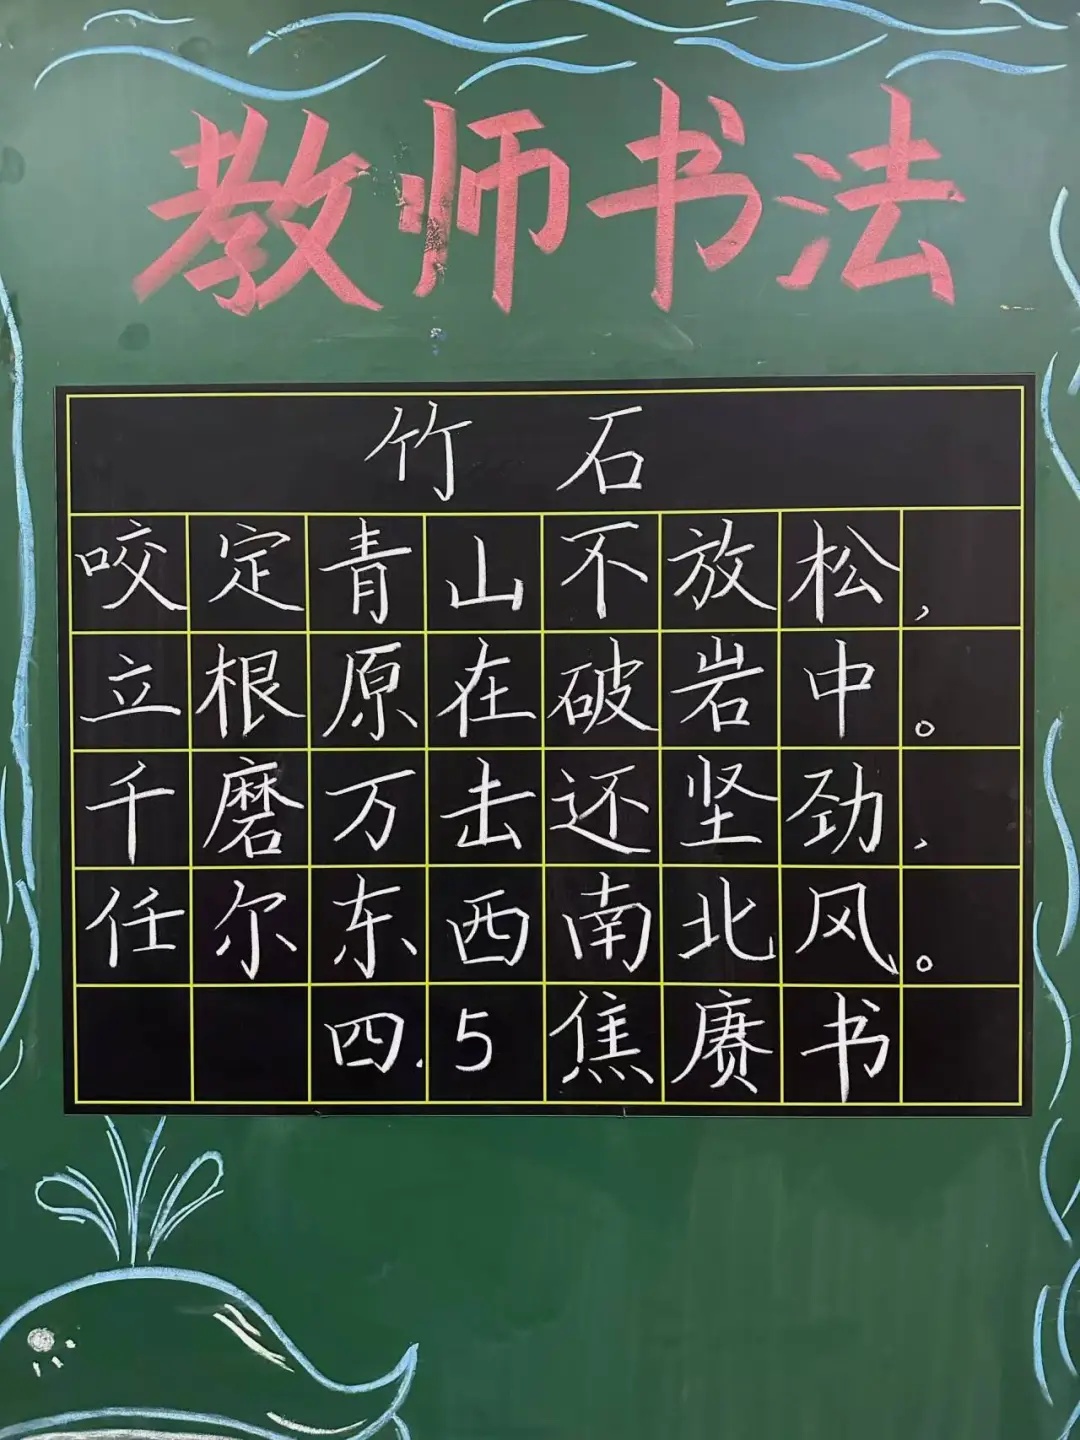 教师书法
竹石
咬定青山不放松，
立根原在破岩中。
千磨万击还坚劲，
任尔东西南北风。
四.5焦赓书